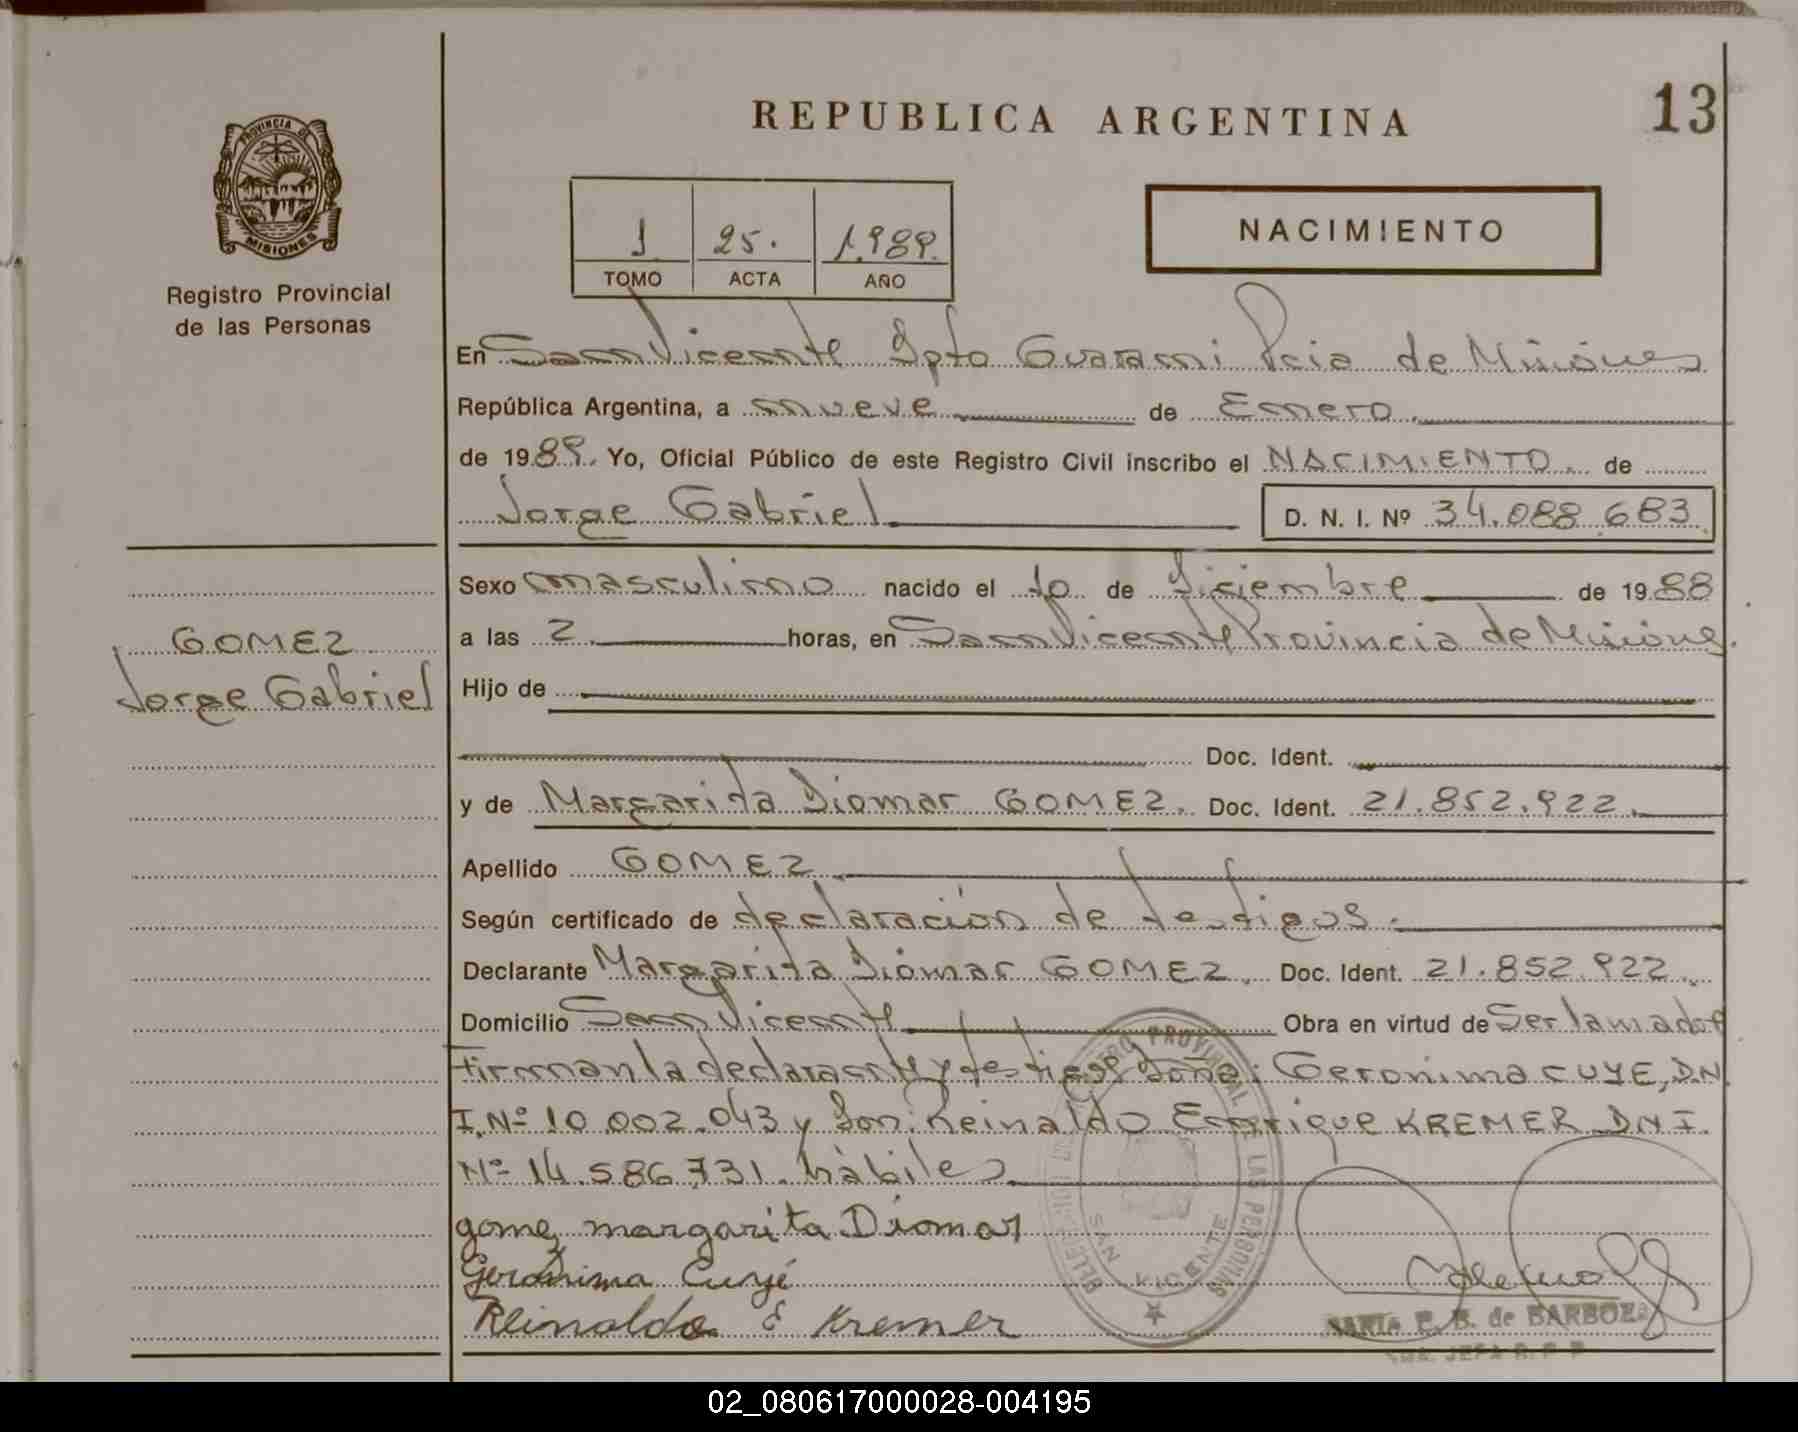 REPUBLICA ARGENTINA
13
PROVINCIA DE
MISIONES
Registro Provincial
de las Personas
1 25. 1.989.
TOMO ACTA AÑO
NACIMIENTO
En San Vicente Dpto Guarani Pcia de Misiones
República Argentina, a nueve de Enero.
de 1989. Yo, Oficial Público de este Registro Civil inscribo el NACIMIENTO. de
Jorge Gabriel D. N. I. Nº 34.088.683
Sexo masculino nacido el 10 de Diciembre de 1988
a las 2. horas, en San Vicente Provincia de Misiones.
GOMEZ
Jorge Gabriel
Hijo de
Doc. Ident.
y de Margarita Diomar GOMEZ. Doc. Ident. 21.852.922.
Apellido GOMEZ
Según certificado de declaración de testigos.
Declarante Margarita Diomar GOMEZ. Doc. Ident. 21.852.922.
Domicilio San Vicente Obra en virtud de Ser la madre
Firman la declarante y testigos Doña: Geronima CUYE, D.N.
I. Nº 10.002.043 y Don: Reinaldo Enrique KREMER D N I.
Nº 14.586.731. hàbiles
gomez margarita Diomar
Geronima Cuyé
Reinaldo E Kremer
SAN VICENTE
MARIA E. B. de BARBOZA
02_080617000028-004195